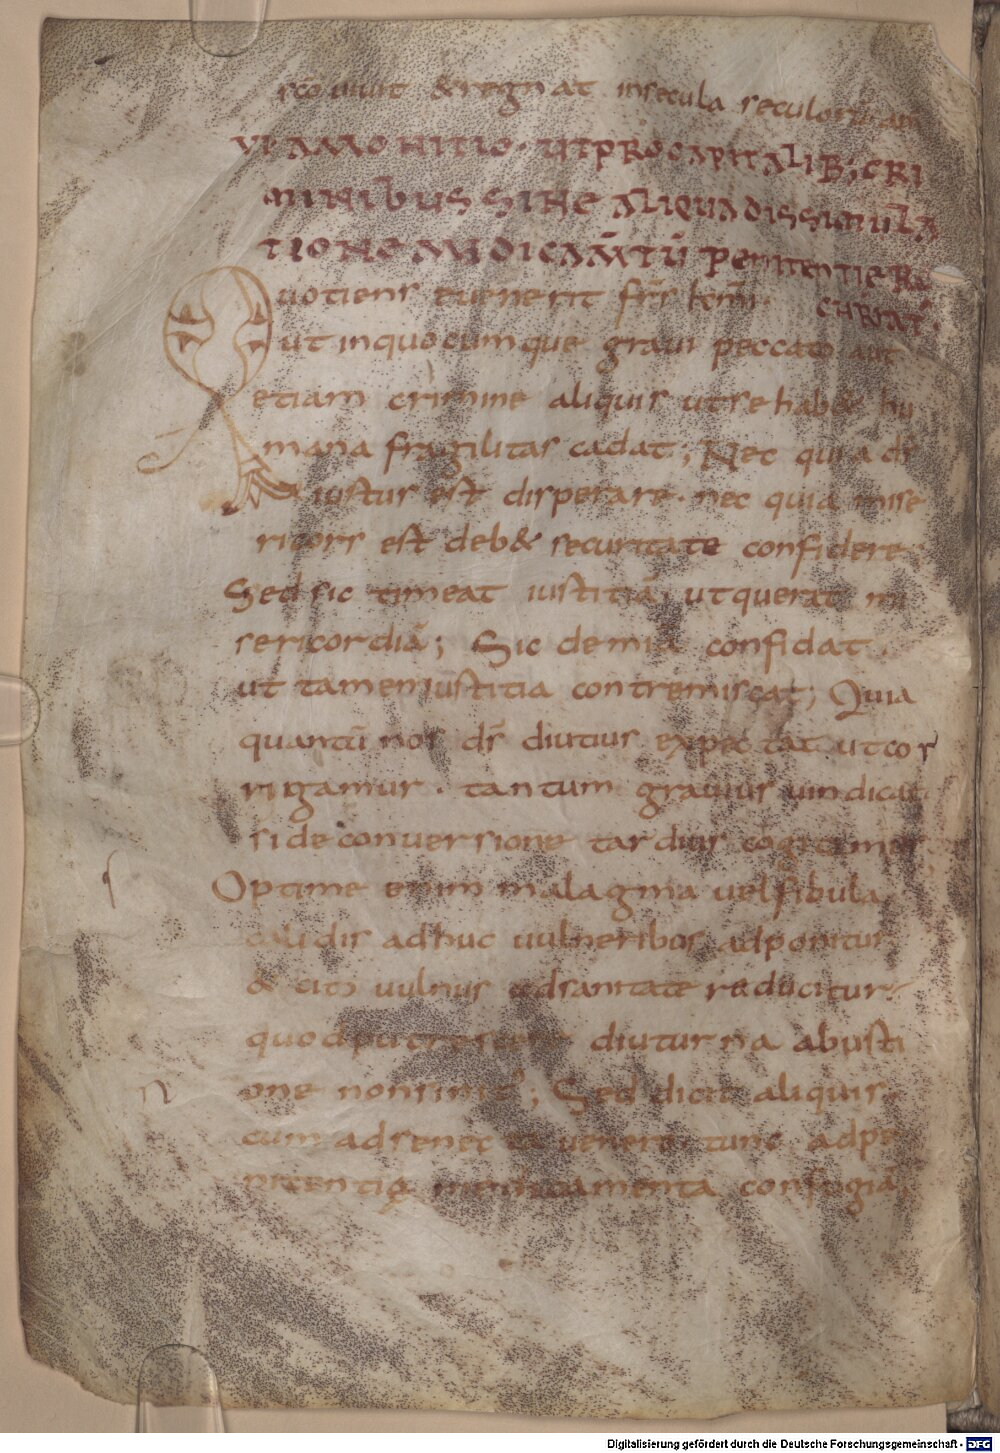 sc̄o uiuit & regnat insecula seculorū am̄
VI AMONITIO · UT PRO CAPITALIB; CRI
MINIBUS SINE ALIQUA DISSIMULA
TIONE MEDICAM̄TŪ PENITENTIE RE
QUIRAT̄.
Quotiens euenerit fr̄s km̄i ·
ut inquocumque graui peccato aut
etiam crimine aliquis utse hab& hu
mana fragilitas cadat; Nec quia ds̄
iustus est disperare · nec quia mise
ricors est deb& securitate confidere
Sed sic timeat iustitiā utquerat mi
sericordiā; Sic demia confidat
ut tamen iustitia contremiscat; Quia
quantū nos ds̄ diutius expectat utcor
rigamur · tantum grauius uindicat
side conuersione tardius cogitamus
Optime enim malagma uelfibula
calidis adhuc uulneribus adponitur
& cito uulnus adsanitate reducitur
quod putrescere diuturna abusti
one nonsinit; Sed dicit aliquis
cum adsenectā uenero tunc adpe
nitentię medicamenta confugiā